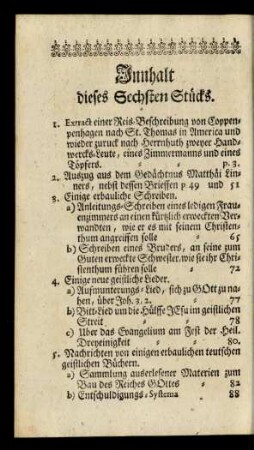 Innhalt
dieses Sechsten Stücks.
1. Extract einer Reis-Beschreibung von Coppen-
penhagen nach St. Thomas in America und
wieder zuruck nach Herrnhuth zweyer Hand-
wercks-Leute, eines Zimmermanns und eines
Töpfers. p. 3.
2. Auszug aus dem Gedächtnus Matthäi Lin-
ners, nebst dessen Brieffen p 49 und 51
3. Einige erbauliche Schreiben.
a) Anleitungs-Schreiben eines ledigen Frau-
enzimmers an einen kürtzlich erweckten Ver-
wandten, wie er es mit seinem Christen-
thum angreiffen solle 65
b) Schreiben eines Bruders, an seine zum
Guten erweckte Schwester, wie sie ihr Chri-
stenthum führen solle 72
4. Einige neue geistliche Lieder.
a) Aufmunterungs-Lied, sich zu GOtt zu na-
hen, über Joh. 3. 2. 77
b) Bitt-Lied um die Hülffe JEsu im geistlichen
Streit 78
c) Uber das Evangelium am Fest der Heil.
Dreyeinigkeit 80.
5. Nachrichten von einigen erbaulichen teutschen
geistlichen Büchern.
a) Sammlung auserlesener Materien zum
Bau des Reiches GOttes 82
b) Entschuldigungs-Systema 88